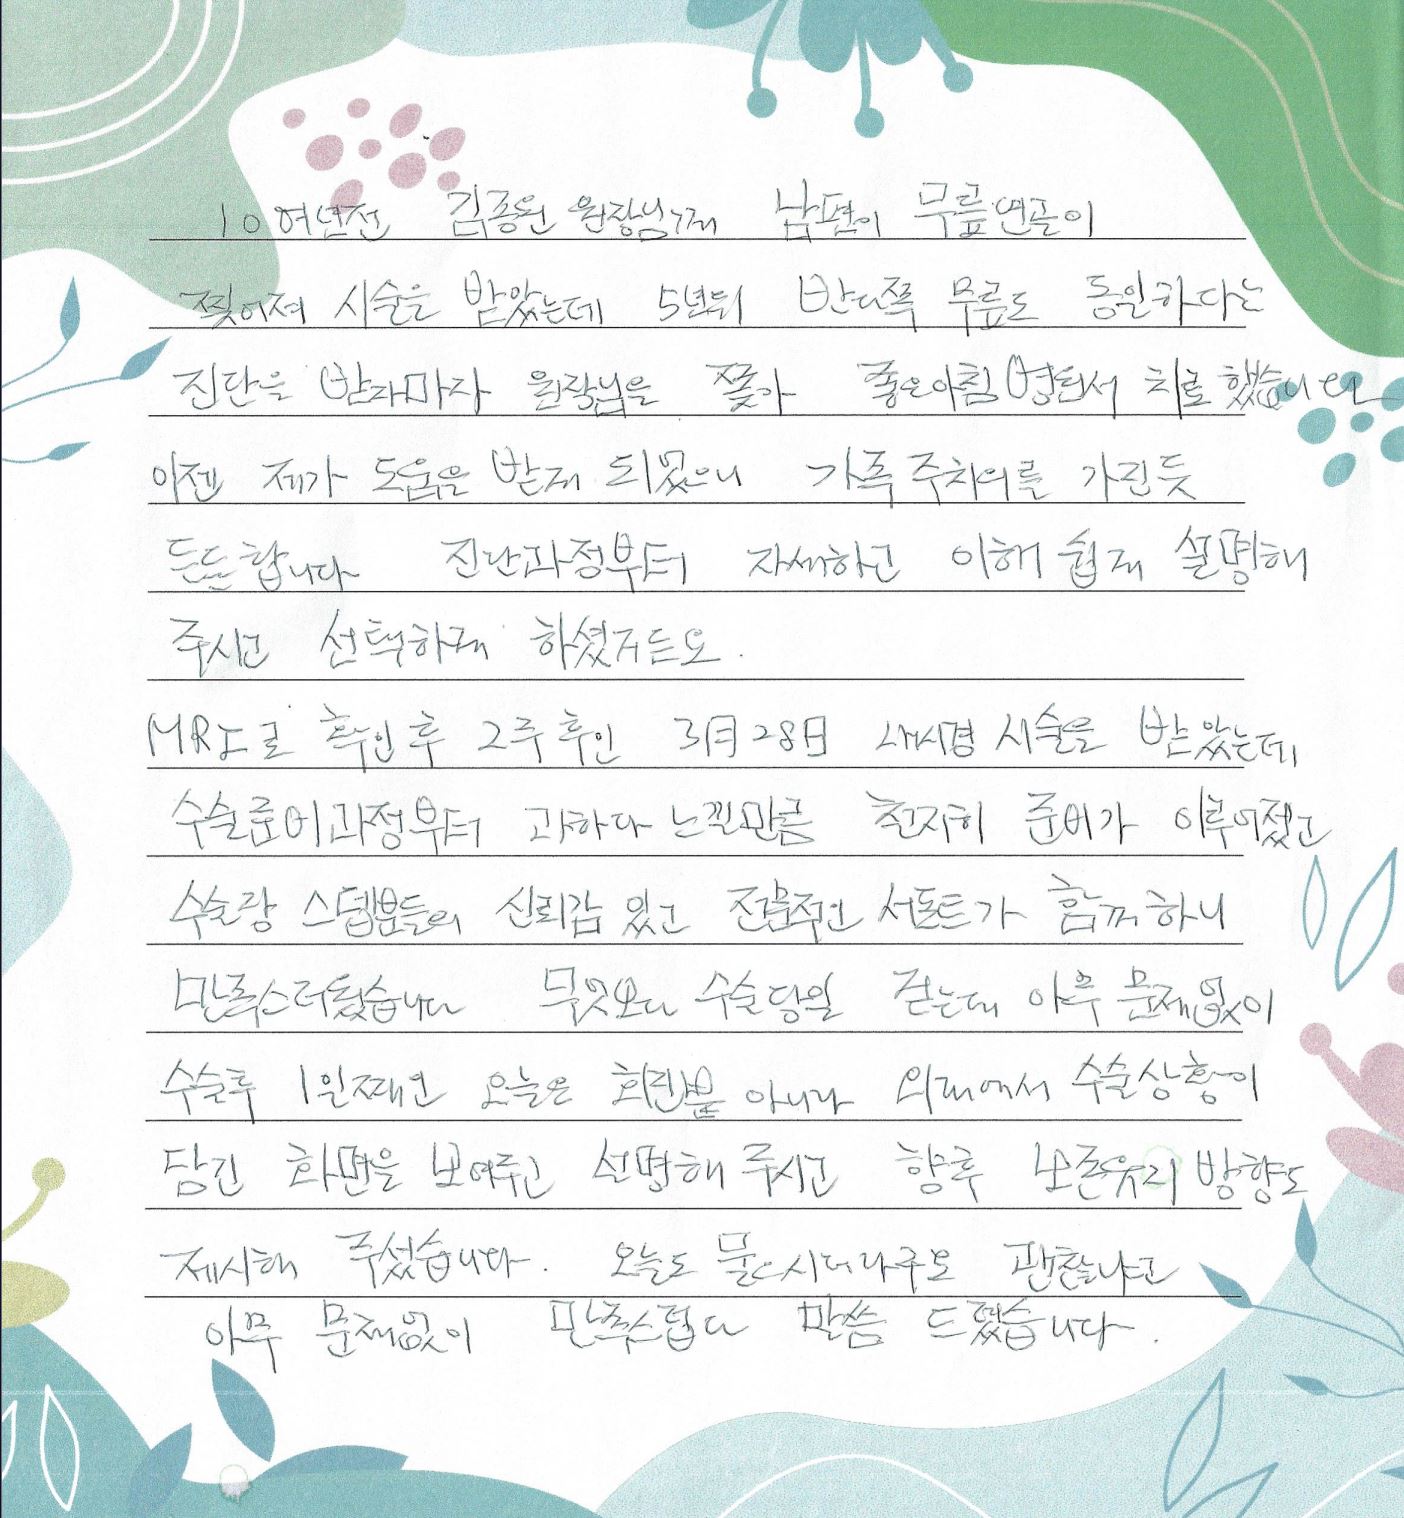 10여년전 김종원 원장님께 남편이 무릎연골이
찢어져 시술을 받았는데 5년뒤 반대쪽 무릎도 동일하다는
진단을 받자마자 원장님을 쫓아 좋은아침병원서 치료했습니다
이젠 제가 도움을 받게 되었으니 가족주치의를 가진듯
든든합니다 진단과정부터 자세하고 이해 쉽게 설명해
주시고 선택하게 하셨거든요.
MRI로 확인후 2주후인 3月28日 내시경 시술을 받았는데
수술준비과정부터 과하다 느낄만큼 철저히 준비가 이루어졌고
수술랑 스텝분들의 신뢰감 있고 전문적인 서포트가 함께하니
만족스러웠습니다 무엇보다 수술당일 걷는데 아무 문제없이
수술후 1일째인 오늘은 회진뿐 아니라 외래에서 수술상황이
담긴 화면을 보여주고 설명해 주시고 향후 보존유지 방향도
제시해 주셨습니다. 오늘도 물으시더라구요 괜찮냐고
아무 문제없이 만족스럽다 말씀 드렸습니다.